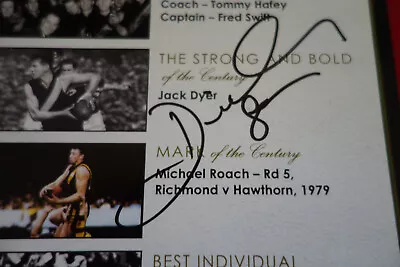 Coach – Tommy Hafey
Captain – Fred Swift
THE STRONG AND BOLD
of the Century
Jack Dyer
MARK of the Century
Michael Roach – Rd 5,
Richmond v Hawthorn, 1979
BEST INDIVIDUAL